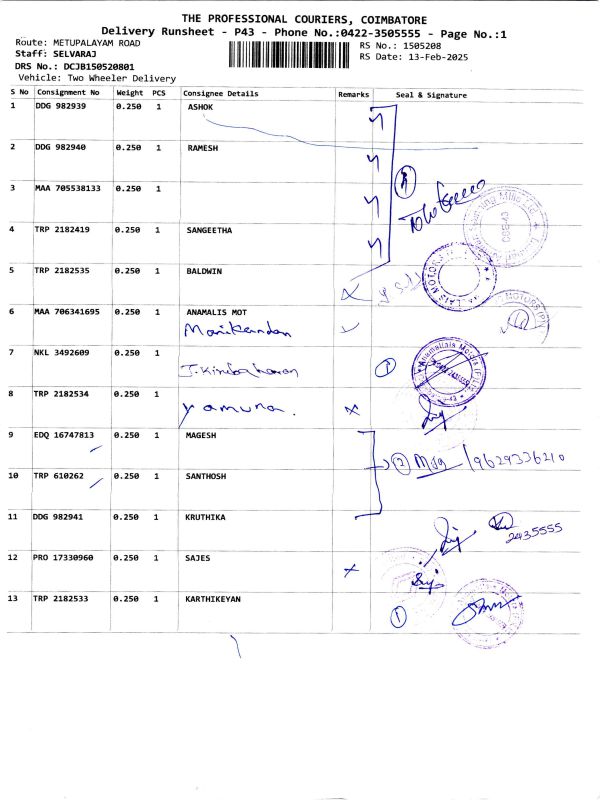 THE PROFESSIONAL COURIERS, COIMBATORE
Delivery Runsheet - P43 - Phone No.:0422-3505555 - Page No.:1
Route: METUPALAYAM ROAD
Staff: SELVARAJ
DRS No.: DCJB150520801
Vehicle: Two Wheeler Delivery
RS No.: 1505208
RS Date: 13-Feb-2025
S No Consignment No Weight PCS Consignee Details Remarks Seal & Signature
1 DDG 982939 0.250 1 ASHOK
2 DDG 982940 0.250 1 RAMESH
3 MAA 705538133 0.250 1
4 TRP 2182419 0.250 1 SANGEETHA
5 TRP 2182535 0.250 1 BALDWIN
6 MAA 706341695 0.250 1 ANAMALIS MOT
Manikandan
7 NKL 3492609 0.250 1
J. Kirubaharan
1
8 TRP 2182534 0.250 1
Yamuna.
9 EDQ 16747813 0.250 1 MAGESH
2 9629336210
10 TRP 610262 0.250 1 SANTHOSH
11 DDG 982941 0.250 1 KRUTHIKA
2435555
12 PRO 17330960 0.250 1 SAJES
13 TRP 2182533 0.250 1 KARTHIKEYAN
1